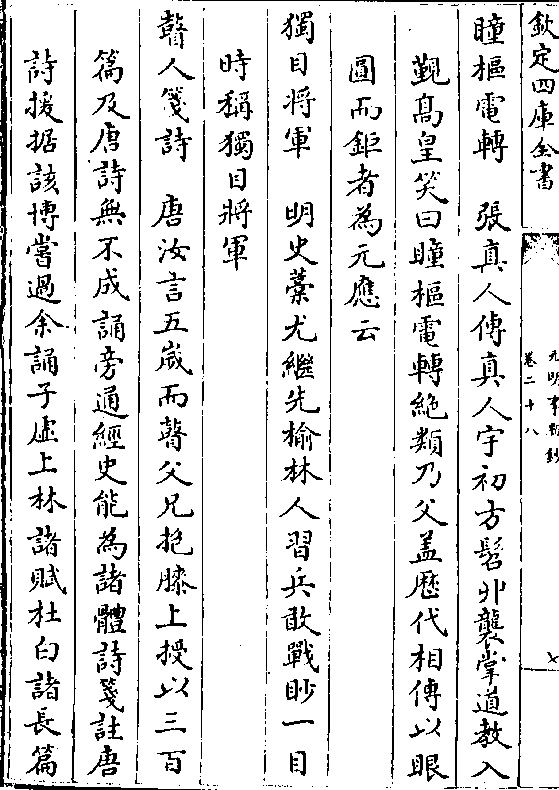 欽定四庫全書
元明事類鈔
卷二十八
七
瞳樞電轉　張真人傳真人宇初方髫丱襲掌道教入
覲髙皇笑曰瞳樞電轉絶類乃父盖歴代相傳以眼
圓而鉅者為元應云
獨目將軍　明史藁尤繼先榆林人習兵敢戰眇一目
時稱獨目將軍
瞽人箋詩　唐汝言五嵗而瞽父兄抱膝上授以三百
篇及唐詩無不成誦旁通經史能為諸體詩箋註唐
詩援据該博嘗過余誦子虚上林諸賦杜白諸長篇